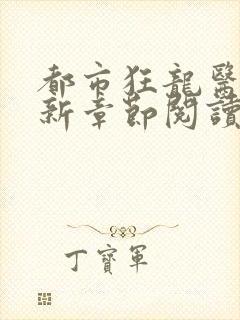 都市狂龍醫
新章節閱讀
丁寶軍